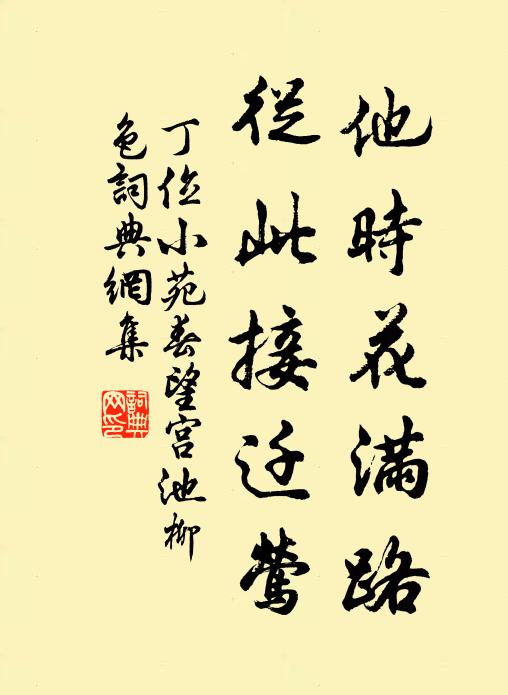 他時花滿路
從此接迁莺
丁位小苑春望宫池柳
色詞典網集
詞典
网印